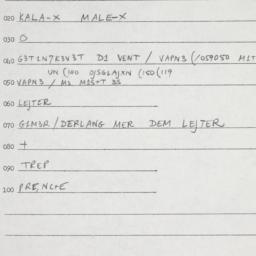 020 KALA-X MALE-X
030 O
040 G3T1N7K3V3T D1 VENT / VAPN3 (/059050 M1T
UN (100 0/SGLAJXN (150(119
050 VAPN3 / M1 M1S+T 3S
060 LEJTER
070 G1M3R / DERLANG MER DEM LEJTER
080 +
090 TREP
100 PRE,NC+E